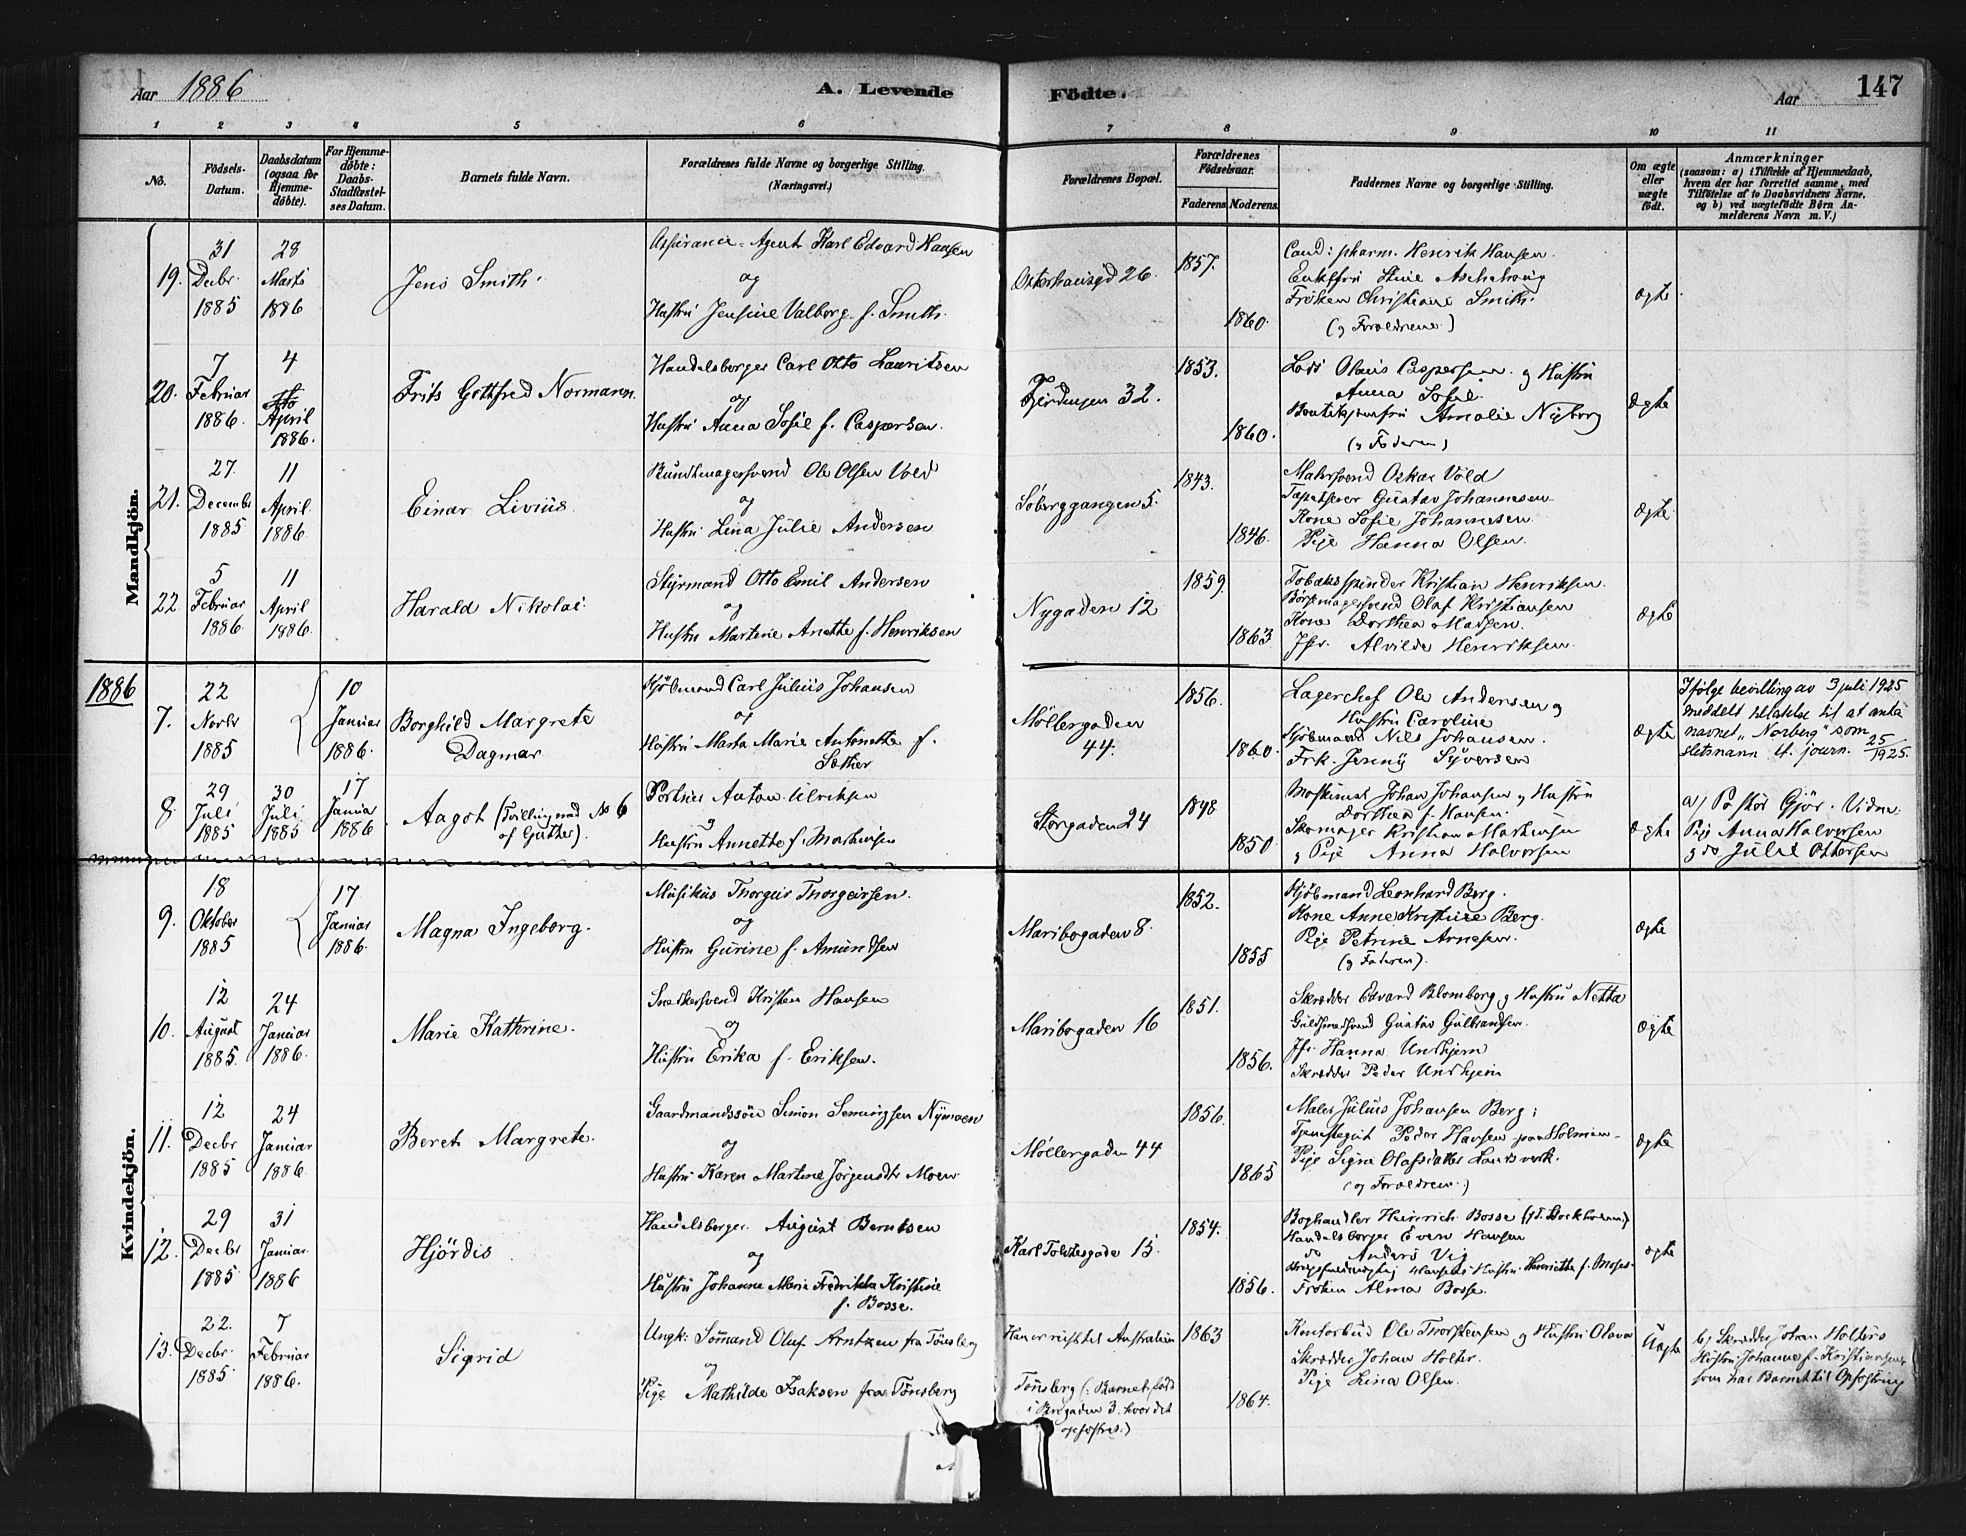 Aar 1886
A. Levende
Födte.
Aar
147
1 2 3 4 5 6 7 8 9 10 11
No.
Födsels-
Datum.
Daabsdatum
(ogsaa for
Hjemme-
döbte).
For Hjemme-
döbte:
Daabs-
Stadfæstel-
ses Datum.
Barnets fulde Navn.
Forældrenes fulde Navne og borgerlige Stilling.
(Næringsvei.)
Forældrenes Bopæl.
Forældrenes
Födselsaar.
Faderens. Moderens.
Faddernes Navne og borgerlige Stilling.
Om ægte
eller
uægte
födt.
Anmærkninger
(saasom: a) i Tilfælde af Hjemmedaab,
hvem der har forrettet samme, med
Tilföielse af to Daabsvidners Navne,
og b) ved uægtefödte Börn An-
melderens Navn m. V.)
Mandkjön.
19.
31
Decbr.
1885
28
Marts
1886
Jens Smith
Assurance-Agent Karl Edvard Hansen
og
Hustru Jensine Valborg f. Smith.
Osterhausgd 26.
1857.
1860.
Cand: pharm. Henrik Hansen.
Enkefru Stine
Fröken Christiane Smith.
(og Forældrene)
ægte
20.
7
Februar
1886.
4
April
1886.
Frits Gottfred Normann.
Handelsborger Carl Otto Lauritsen
og
Hustru Anna Sofie f. Caspersen.
Fjerdingen 32.
1853.
1860.
Lods Olaus Caspersen og Hustru
Anna Sofie.
Amalie Nyborg
(og Faderen)
ægte
21.
27.
December
1885
11
April
1886.
Einar Livius.
Bundtmagersvend Ole Olsen Vold
og
Hustru Lina Julie Andersen
Söberggangen 5.
1843.
1846.
Malersvend Oskar Vold
Tapetserer Gustav Johannesen
Kone Sofie Johannesen
Pige Hanna Olsen.
ægte
22
5
Februar
1886.
11
April
1886.
Harald Nikolai.
Styrmand Otto Emil Andersen
og
Hustru Martine Anette f. Henriksen
Nygaden 12
1859.
1863
Tobaksspinder Kristian Henriksen.
Börstmagersvend Olaf Kristiansen
Kone Dorthea Madsen.
Jfr. Alvilde Henriksen.
ægte
1886
7.
22
Novbr
1885
10
Januar
1886.
Borghild Margrete
Dagmar
Kjöbmand Carl Julius Johansen
og
Hustru Marta Marie Antonette f.
Sæther
Möllergaden
44.
1856.
1860.
Lagerchef Ole Andersen og
Hustru Caroline
Kjöbmand Nils Johansen.
Frk. Jenny Syversen
ægte
Ifölge bevilling av 3 juli 1925
meddelt tilladelse til at anta
navnet "Norberg" som
slektsnavn cf. journ. 25/1925.
8.
29
Juli
1885
30
Juli
1885
17
Januar
1886
Aagot (Tvilling med No 6
af Gutter).
Portner Anton Ulriksen
og
Hustru Annette f. Mathisen
Storgaden 24
1848
1850
Maskinist Johan Johansen og Hustru
Dorthea f. Hansen.
Skomager Kristian Martinsen
og Pige Anna Halvorsen
ægte
a) Pastor Gjör. Vidner:
Pige Anna Halvorsen
og do Julie Ottersen
Kvindekjön.
9.
18
Oktober
1885
17
Januar
1886.
Magna Ingeborg.
Musikus Thorgeir Thorgeirsen.
og
Hustru Gurine f. Amundsen
Maribogaden 8.
1852.
1855
Kjöbmand Leonhard Berg.
Kone Anne Kristine Berg.
Pige Petrine Arnesen.
(og Faderen).
ægte
10.
12
August
1885.
24
Januar
1886.
Marie Kathrine.
Snedkersvend Kristen Hansen
og
Hustru Erika f. Eriksen.
Maribogaden 16
1851.
1856.
Skrædder Edvard Blomberg og Hustru Netta
Guldsmedsvend Gustav Gulbrandsen.
Jfr. Hanna Undhjem
Skrædder Peder Undhjem
ægte
11.
12
Decbr
1885
24
Januar
1886.
Beret Margrete.
Gaardmandssön Simon Nymoen
og
Hustru Karen Martine Jörgensdtr Moen
Möllergaden 44
1856.
1865
Maler Julius Johansen Berg;
Peder Hansen paa Holmen.
Pige Signe Olafsdatter Landsverk.
(og Forældrene.)
ægte
12.
29
Decbr
1885
31
Januar
1886
Hjördis
Handelsborger August Berntsen
og
Hustru Johanne Marie Fredrikke Kristine
f. Bosse.
Karl Johansgade 15.
1854.
1856.
Boghandler Heinrich Bosse (fr. Stockholm)
Handelsborger Even Hansen
do Anders Vig
Hansens Hustru Henriette f. Moses.
Fröken Alma Bosse.
ægte
13.
22.
Decbr.
1885
7
Februar
1886.
Sigrid
Ungk: Sömand Oluf Arntzen fra Tönsberg
og
Pige Mathilde Isaksen fra Tönsberg
Han er reist til Australien
Tönsberg (: Barnet föd
i Brugaden 3. hvor det
opfostres.)
1863
1864.
Kontorbud Ole Thorstensen og Hustru Olava
Skrædder Johan Holter.
Pige Lina Olsen.
Uægte
b) Skrædder Johan Holters
Hustru Johanne f. Kristiansen,
som har Barnet til Opfostring